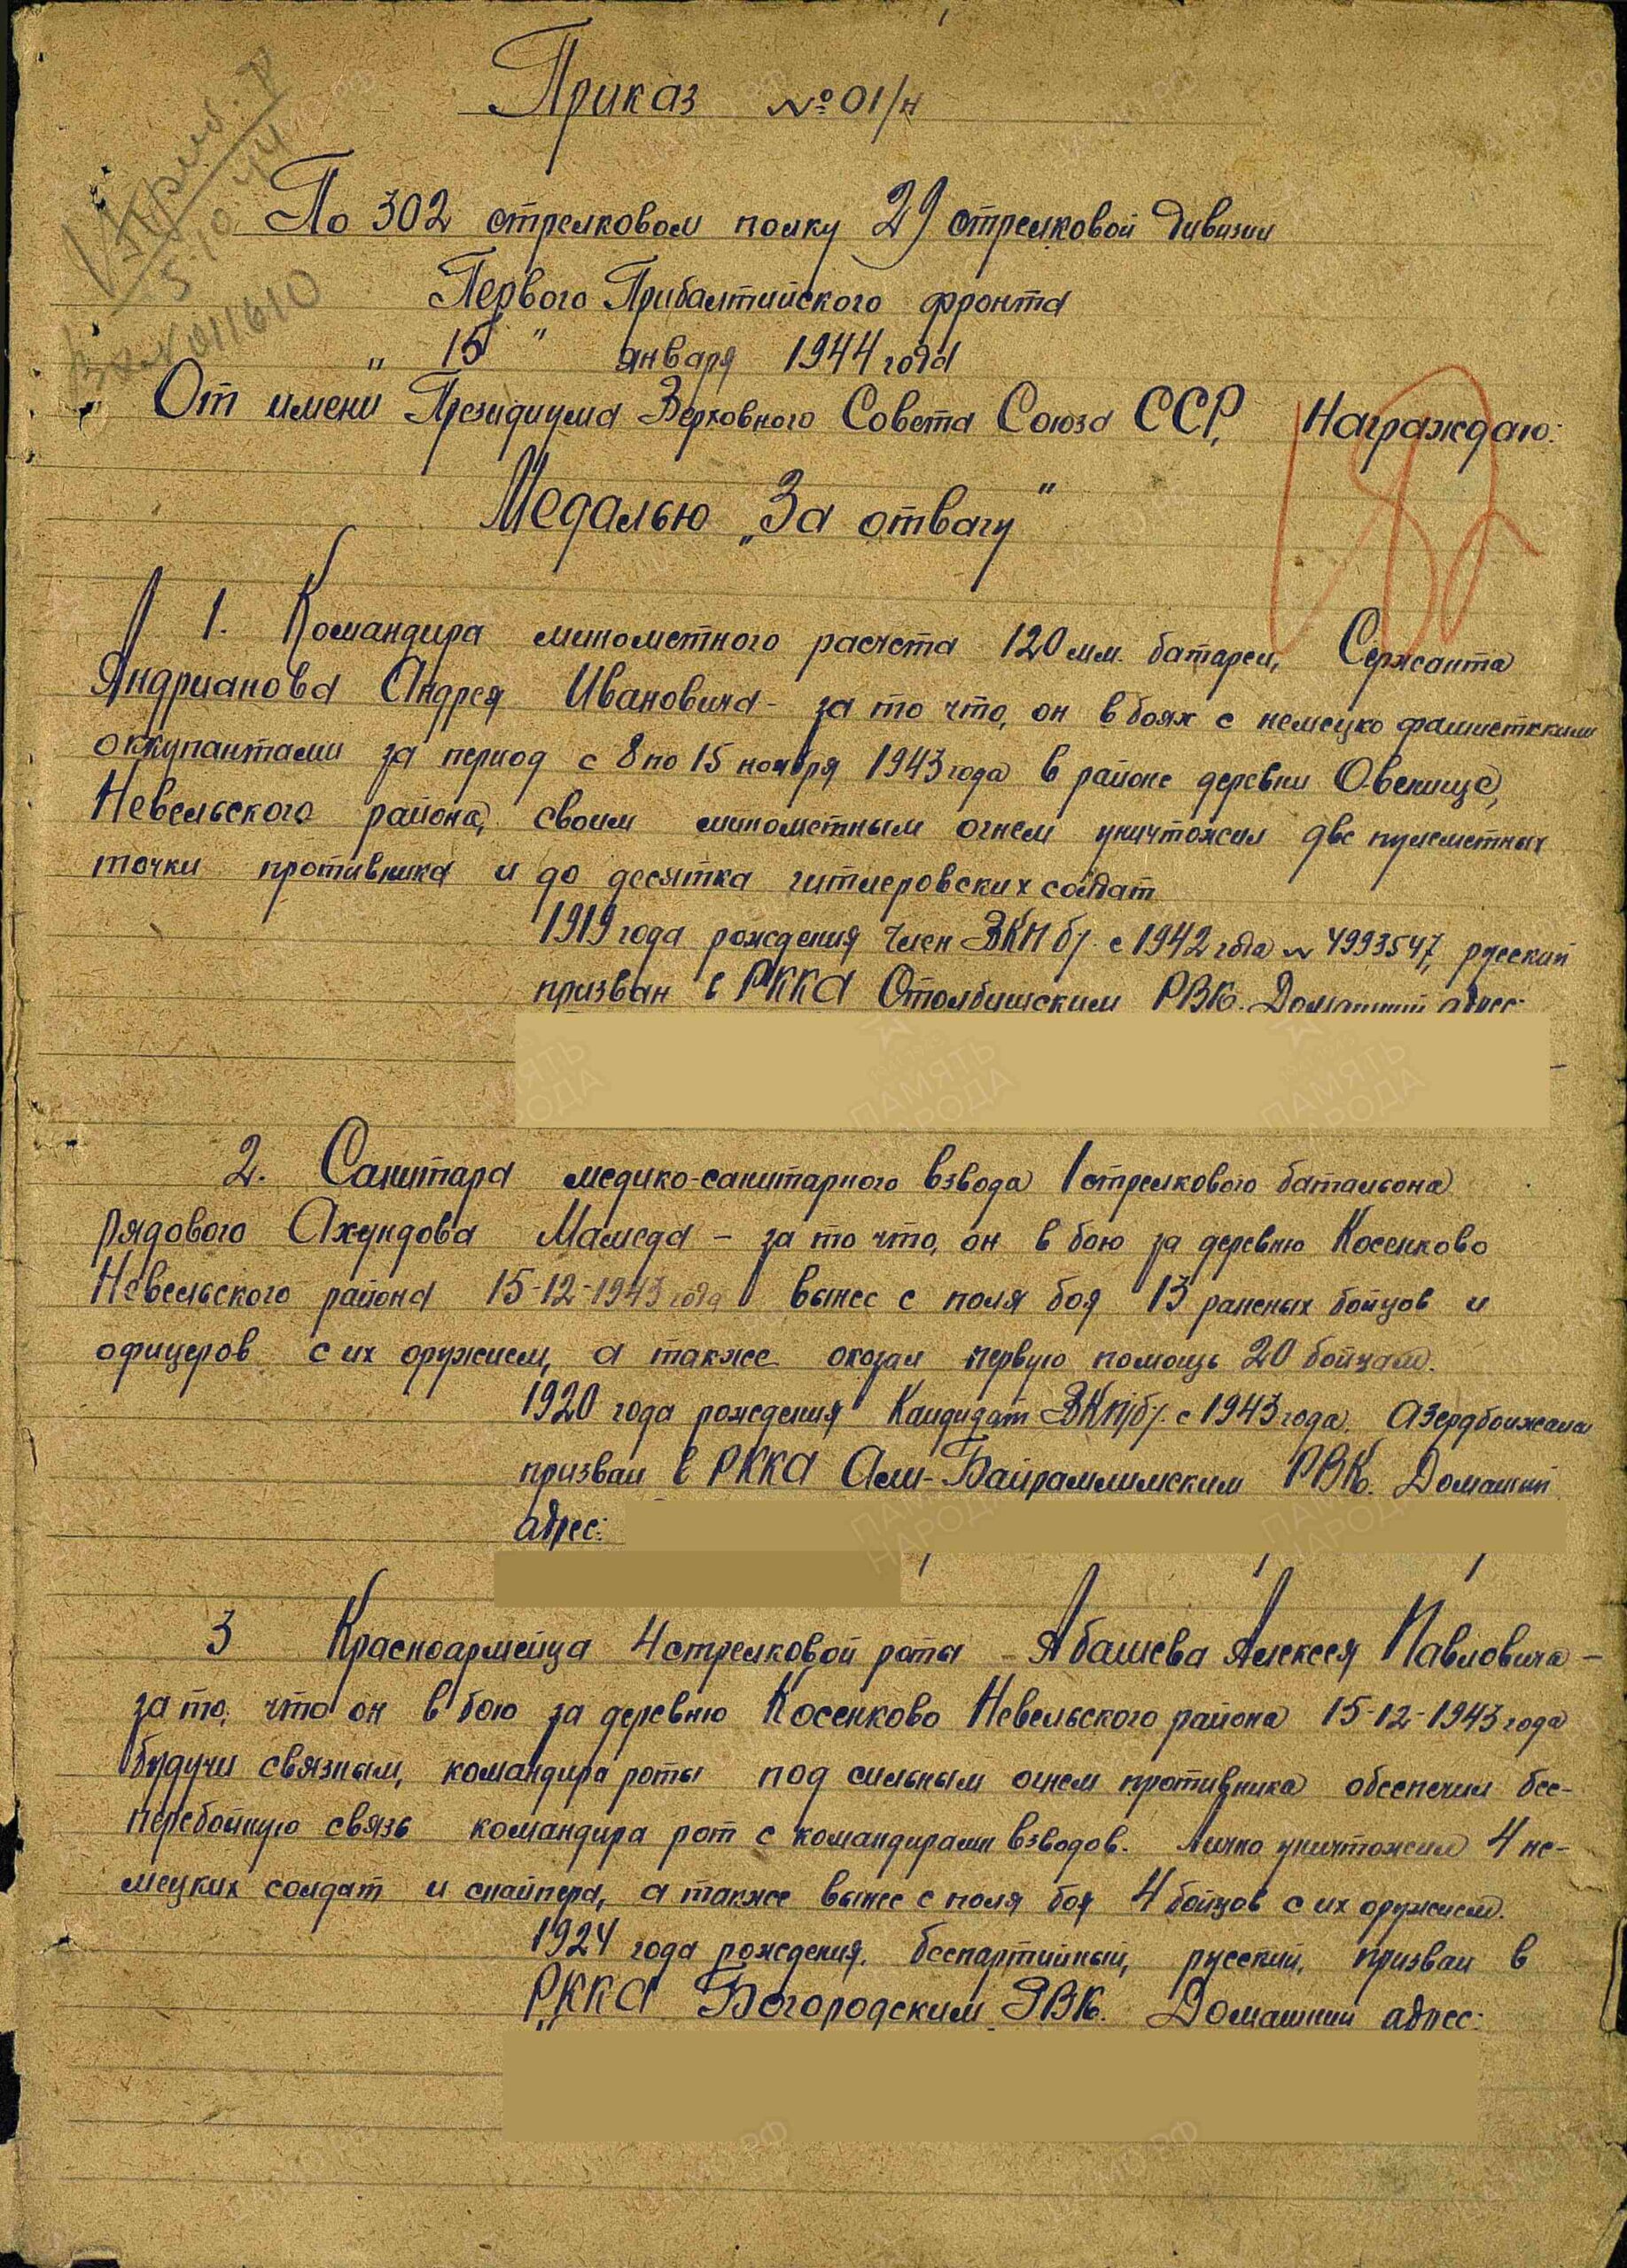 Приказ №01/н
По 302 стрелковом полку 29 стрелковой дивизии
Первого Прибалтийского фронта
„ 15 " января 1944 года
От имени Президиума Верховного Совета Союза ССР, Награждаю:
Медалью „За отвагу"
1. Командира минометного расчета 120 мм. батареи, Сержанта
Андрианова Андрея Ивановича - за то что, он в боях с немецко фашисткими
оккупантами за период с 8 по 15 ноября 1943 года в районе деревни
Невельского района, своим минометным огнем уничтожил две пулеметных
точки противника и до десятка гитлеровских солдат
1919 года рождения член ВКП б/. с 1942 года № 4993547, русский
призван в РККА Столбищским РВК. Домашний адрес:
2. Санитара медико-санитарного взвода 1 стрелкового баталиона
рядового Ахундова Мамеда - за то что, он в бою за деревню Косенково
Невельского района 15-12-1943 года вынес с поля боя 13 раненых бойцов и
офицеров с их оружием, а также оказал первую помощь 20 бойцам.
1920 года рождения Кандидат ВКП/б/. с 1943 года.
призван в РККА РВК. Домашний
адрес:
3 Красноармейца 4 стрелковой роты - Абашева Алексея Павловича -
за то, что он в бою за деревню Косенково Невельского района 15-12-1943 года
будучи связным, командира роты под сильным огнем противника обеспечил бес-
перебойную связь командира рот с командирами взводов. Лично уничтожил 4 не-
мецких солдат и снайпера, а также вынес с поля боя 4 бойцов с их оружием.
1924 года рождения. беспартийный, русский, призван в
РККА Богородским РВК. Домашний адрес: